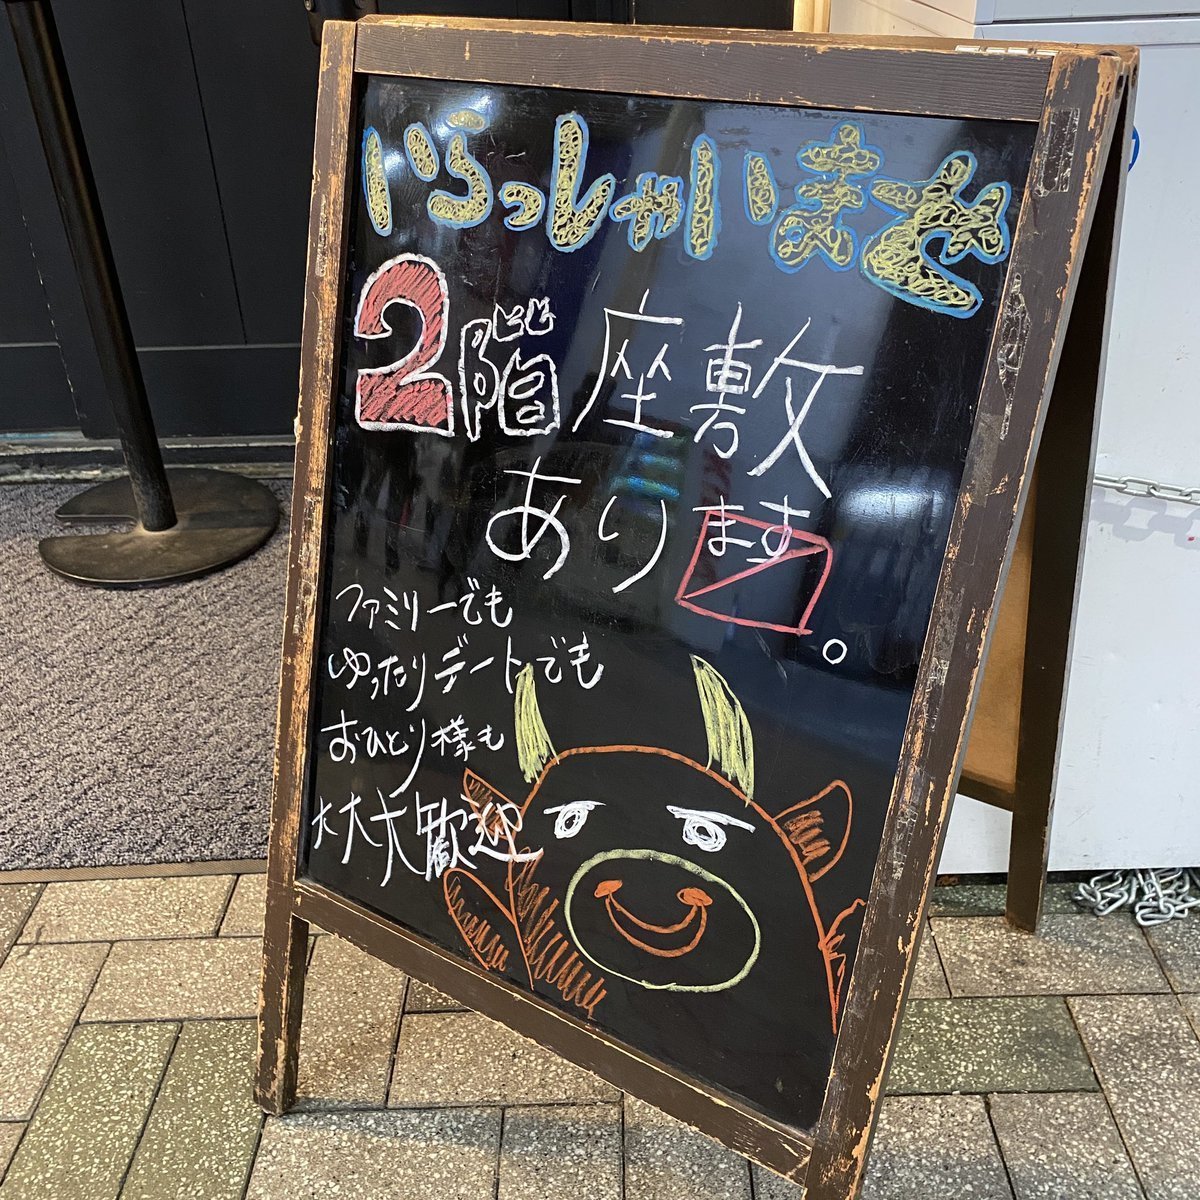 いらっしゃいまさ
2階座敷
あります〼。
ファミリーでも
ゆったりデートでも
おひとり様も
大大大歓迎